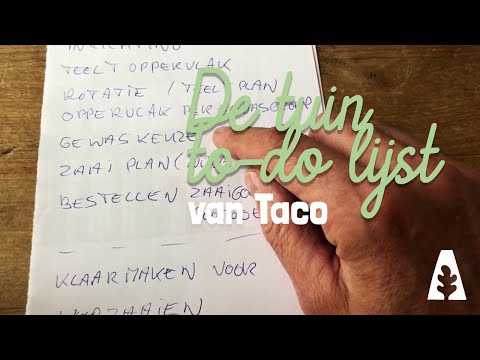 INRICHTING
TEELT OPPERVLAK
ROTATIE / TEELTPLAN
OPPERVLAK PER
GEWASKEUZE
ZAAI PLAN
BESTELLEN ZAAIGO
KLAARMAKEN VOOR
VOORZAAIEN
De tuin
to-do lijst
van Taco